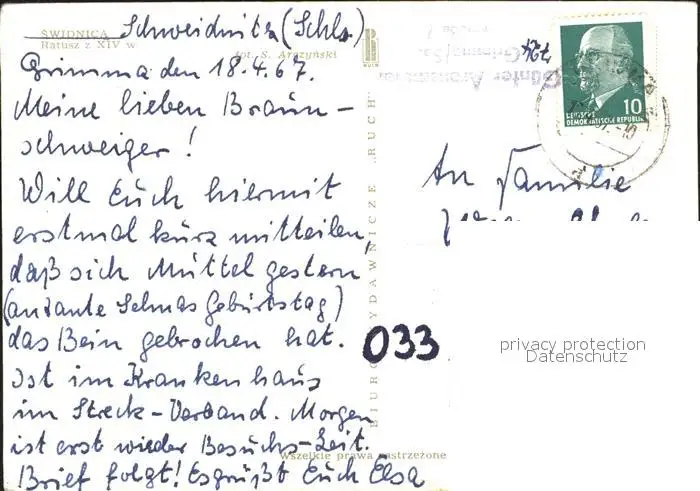 Schweidnitz (Schls.)
ŚWIDNICA
Ratusz z XIV w.
fot. S. Arczyński
RUCH
Grimma den 18.4.67.
Meine lieben Braun-
schweiger!
Will Euch hiermit
erstmal kurz mitteilen,
daß sich Muttel gestern
(an Tante Selmas Geburtstag)
das Bein gebrochen hat.
Ist im Krankenhaus
im Streck-Verband. Morgen
ist erst wieder Besuchs-Zeit.
Brief folgt! Es grüßt Euch Elsa
Wszelkie prawa zastrzeżone
BIURO WYDAWNICZE „RUCH"
724
Günter
Grimma/Sa.
10
DEUTSCHE
DEMOKRATISCHE REPUBLIK
An Familie
033
privacy protection
Datenschutz